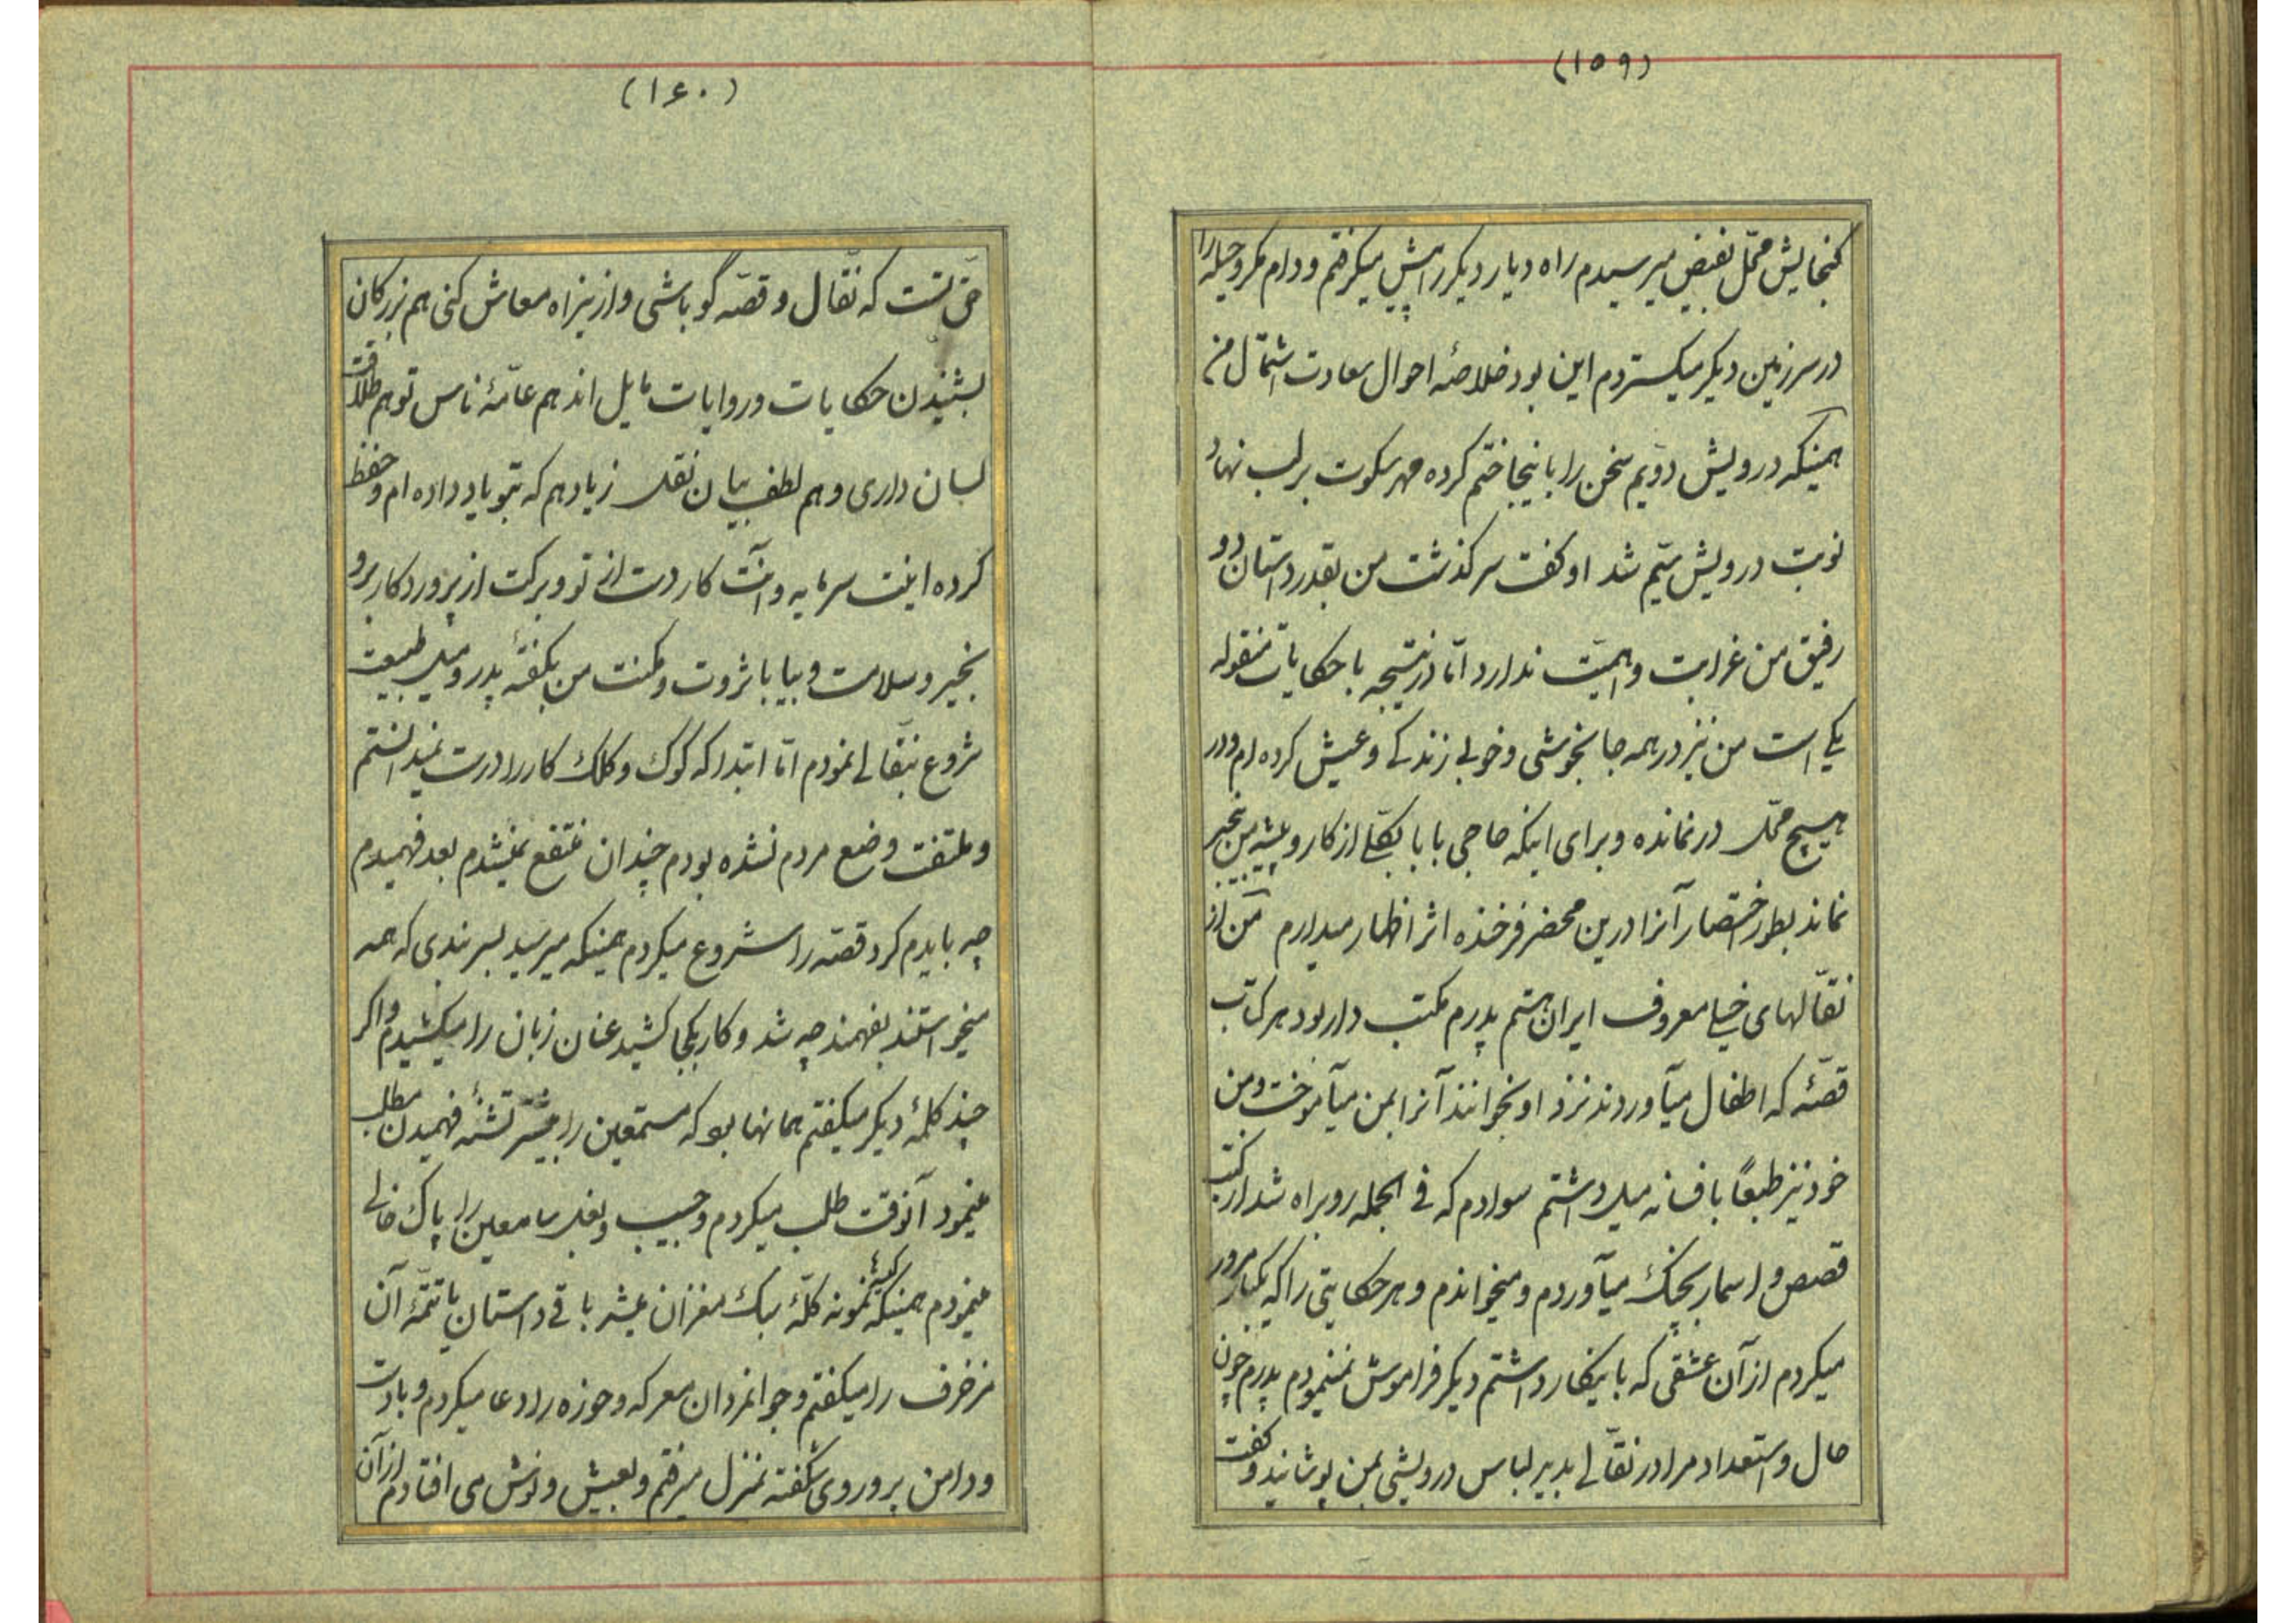 (۱۵۹)
کنجایش محمل نقیض میرسیدم راه دیار دیکر را پیش میکرفتم و دام مکر و حیله را
در سرزمین دیکر میکستردم این بود خلاصهٔ احوال سعادت اشتمال من
همینکه درویش دویم سخن را باینجا ختم کرده مهر سکوت بر لب نهاد
نوبت درویش سیّم شد او کفت سرکذشت من بقدر داستان دو
رفیق من غرابت و اهمیّت ندارد امّا در نتیجه با حکایات منقوله
یکی است من نیز در همه جا بخوشی و خوبی زندکی و عیش کرده ام و در
هیچ محلّ در نمانده و برای اینکه حاجی بابا بکلّی از کار و پیشه من بیخبر
نماند بطور اختصار آنرا درین محضر فرخنده اثر اظهار میدارم من از
نقّالهای خیلی معروف ایران هستم پدرم مکتب دار بود هر کتاب
قصّهٔ که اطفال میآوردند نزد او بخوانند آنرا بمن میآموخت و من
خود نیز طبعاً بافسانه میل داشتم سوادم که فی الجمله روبراه شد از کتب
قصص و اسمار بچنک میآوردم و میخواندم و هر حکایتی را که یکبار مرور
میکردم از آن عشقی که باینکار داشتم دیکر فراموش نمینمودم پدرم چون
حال و استعداد مرا در نقّالی بدید لباس درویشی بمن پوشانید و کفت
(۱۶۰)
حقّ تست که نقّال و قصّه گو باشی و از ینراه معاش کنی هم بزرکان
بشنیدن حکایات و روایات مایل اند هم عامّهٔ ناس تو هم طلاقت
لسان داری و هم لطف بیان نقل زیاد هم که بتو یاد داده ام و حفظ
کرده اینت سرمایه و آنت کار دست از تو و برکت از پروردکار برو
بخیر و سلامت و بیا با ثروت و مکنت من بکفتهٔ پدر و میل طبیعت
شروع بنقّالی نمودم امّا ابتدا که کوک و کلک کار را درست نمیدانستم
و ملتفت وضع مردم نشده بودم چندان منتفع نمیشدم بعد فهمیدم
چه بایدم کرد قصّه را شروع میکردم همینکه میرسید بسر بندی که همه
میخواستند بفهمند چه شد و کار بکجا کشید عنان زبان را میکشیدم و اکر
چند کلمهٔ دیکر میکفتم همانها بود که مستمعین را بیشتر تشنهٔ فهمیدن مطلب
مینمود آنوقت طلب میکردم و جیب و بغل سامعین را پاک خالی
مینمودم همینکه کیسهٔ نمونه کلّهٔ سبک مغزان میشد باقی داستان یا تتمّهٔ آن
مزخرف را میکفتم و جوانمردان معرکه و حوزه را دعا میکردم و با دست
و دامن پر و روی شکفته بمنزل میرفتم و بعیش و نوش می افتادم از آن